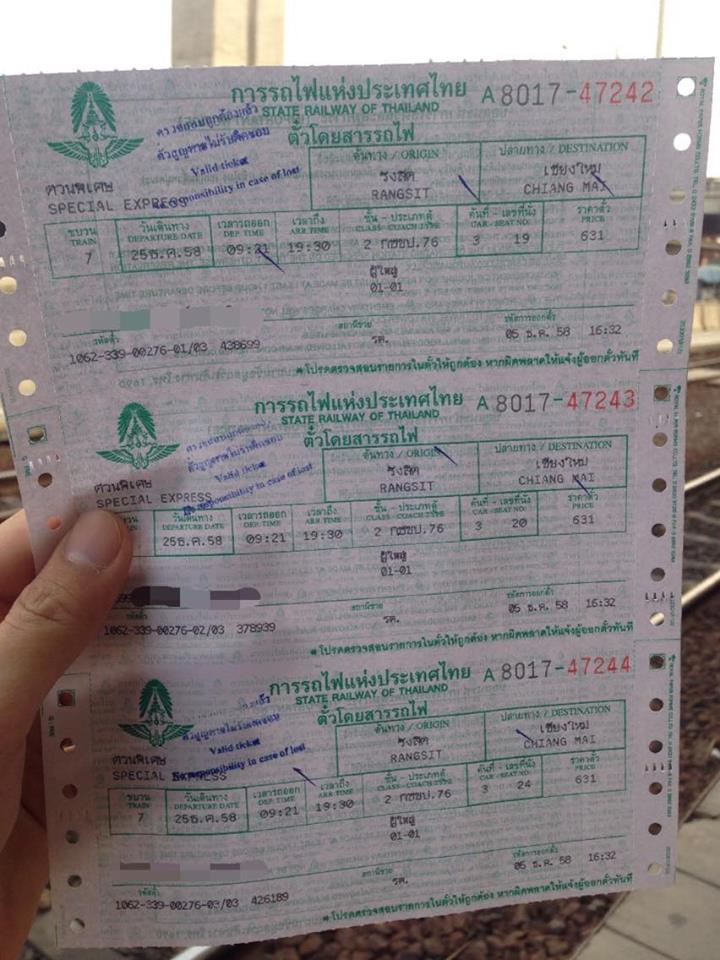 การรถไฟแห่งประเทศไทย A 8017-47242
STATE RAILWAY OF THAILAND
ตั๋วโดยสารรถไฟ
ตรวจสอบถูกต้องแล้ว
ตั๋วสูญหายไม่รับผิดชอบ
Valid ticket
responsibility in case of lost
ต้นทาง / ORIGIN ปลายทาง / DESTINATION
ด่วนพิเศษ รังสิต เชียงใหม่
SPECIAL EXPRESS RANGSIT CHIANG MAI
ขบวน วันเดินทาง เวลารถออก เวลาถึง ชั้น - ประเภทตู้ คันที่ - เลขที่นั่ง ราคาตั๋ว
TRAIN DEPARTURE DATE DEP. TIME ARR TIME CLASS - COACH TYPE CAR - SEAT NO. PRICE
7 25ธ.ค.58 09:21 19:30 2 กซขป.76 3 19 631
ผู้ใหญ่
01-01
รหัสตั๋ว สถานีขาย รหัสการออกตั๋ว
1062-339-00276-01/03 438699 รต. 05 ธ.ค. 58 16:32
โปรดตรวจสอบรายการในตั๋วให้ถูกต้อง หากผิดพลาดให้แจ้งผู้ออกตั๋วทันที
การรถไฟแห่งประเทศไทย A 8017-47243
STATE RAILWAY OF THAILAND
ตั๋วโดยสารรถไฟ
ตรวจสอบถูกต้องแล้ว
ตั๋วสูญหายไม่รับผิดชอบ
Valid ticket
No responsibility in case of lost
ต้นทาง / ORIGIN ปลายทาง / DESTINATION
ด่วนพิเศษ รังสิต เชียงใหม่
SPECIAL EXPRESS RANGSIT CHIANG MAI
ขบวน วันเดินทาง เวลารถออก เวลาถึง ชั้น - ประเภทตู้ คันที่ - เลขที่นั่ง ราคาตั๋ว
DEPARTURE DATE DEP. TIME ARR TIME CLASS - COACH TYPE CAR - SEAT NO. PRICE
25ธ.ค.58 09:21 19:30 2 กซขป.76 3 20 631
ผู้ใหญ่
01-01
รหัสตั๋ว สถานีขาย รหัสการออกตั๋ว
1062-339-00276-02/03 378939 รต. 05 ธ.ค. 58 16:32
โปรดตรวจสอบรายการในตั๋วให้ถูกต้อง หากผิดพลาดให้แจ้งผู้ออกตั๋วทันที
การรถไฟแห่งประเทศไทย A 8017-47244
STATE RAILWAY OF THAILAND
ตั๋วโดยสารรถไฟ
ตั๋วสูญหายไม่รับผิดชอบ
Valid ticket
No responsibility in case of lost
ต้นทาง / ORIGIN ปลายทาง / DESTINATION
ด่วนพิเศษ รังสิต เชียงใหม่
SPECIAL EXPRESS RANGSIT CHIANG MAI
ขบวน วันเดินทาง เวลารถออก เวลาถึง ชั้น - ประเภทตู้ คันที่ - เลขที่นั่ง ราคาตั๋ว
TRAIN DEPARTURE DATE DEP. TIME ARR TIME CLASS - COACH TYPE CAR - SEAT NO. PRICE
7 25ธ.ค.58 09:21 19:30 2 กซขป.76 3 24 631
ผู้ใหญ่
01-01
รหัสตั๋ว สถานีขาย รหัสการออกตั๋ว
1062-339-00276-03/03 426189 รต. 05 ธ.ค. 58 16:32
โปรดตรวจสอบรายการในตั๋วให้ถูกต้อง หากผิดพลาดให้แจ้งผู้ออกตั๋วทันที